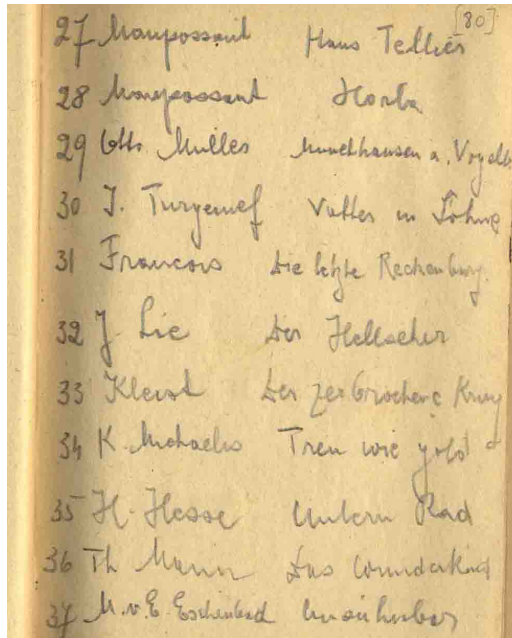 [80]
27 Maupossant Haus Tellier
28 Maupossant Horla
29 Otto Müller Münchhausen u. Vogelb
30 J. Turgenief Vätter u Söhne
31 Francois Die letzte Reckenburg.
32 J Lie Der Hellseher
33 Kleist Der zerbrochene Krug
34 K. Michaelis Treu wie gold
35 H. Hesse Unterm Rad
36 Th Mann Das Wunderkind
37 M.v.E. Eschenbach